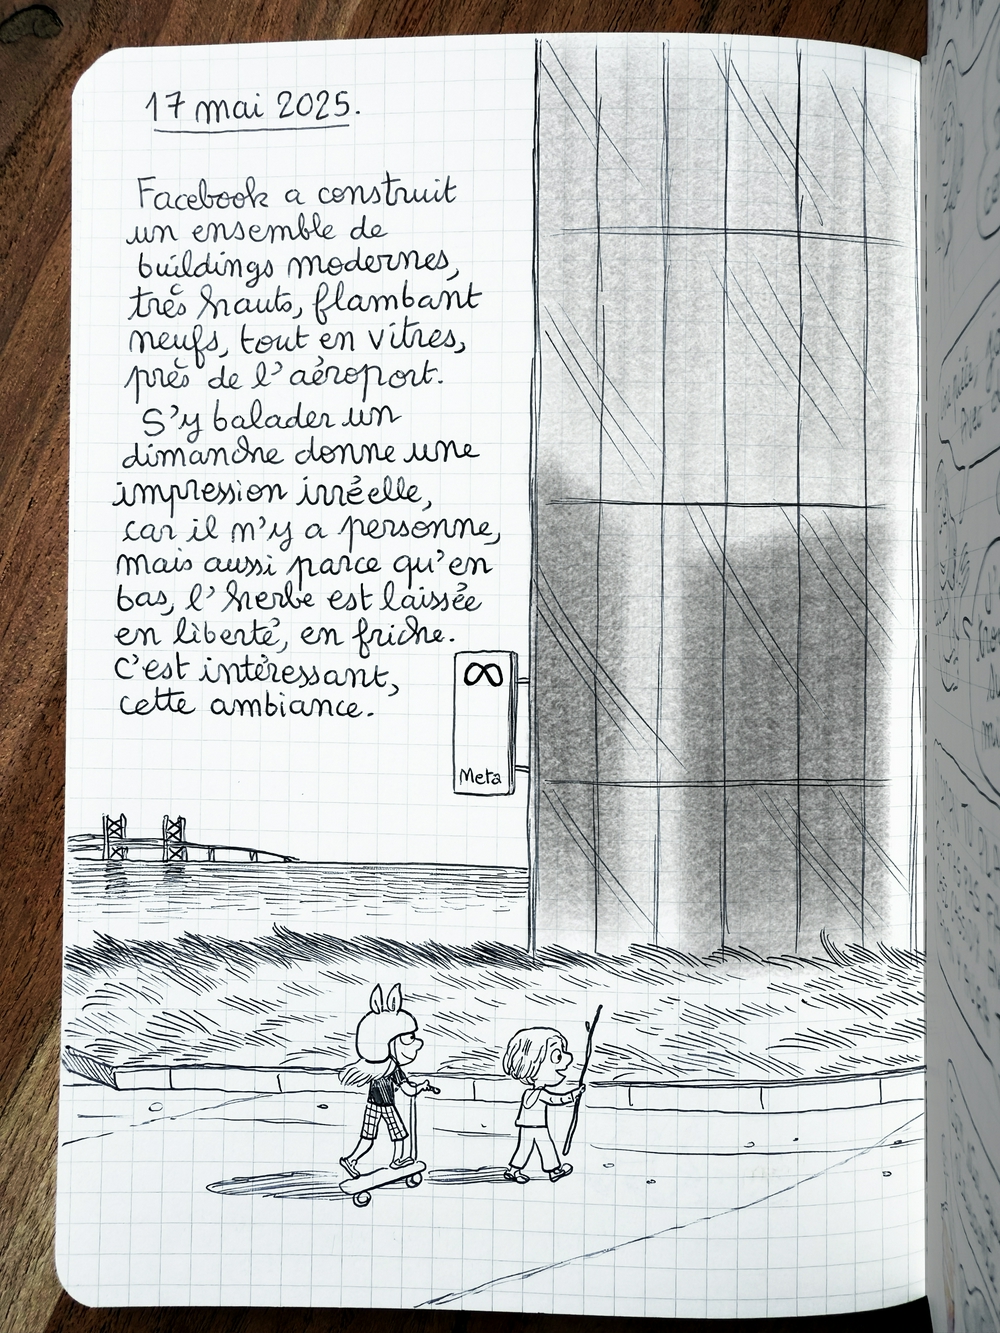 17 mai 2025.
Facebook a construit
un ensemble de
buildings modernes,
très hauts, flambant
neufs, tout en vitres,
près de l'aéroport.
S'y balader un
dimanche donne une
impression irréelle,
car il n'y a personne,
mais aussi parce qu'en
bas, l'herbe est laissée
en liberté, en friche.
C'est intéressant,
cette ambiance.
Meta